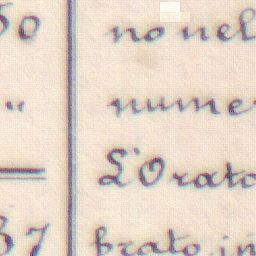 50 no nel
" nume
L'Orato
37 brato in